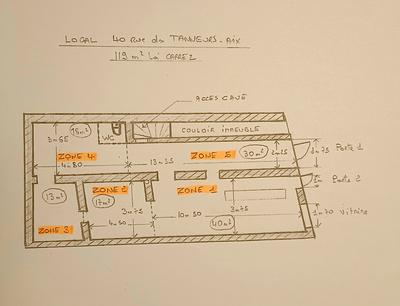 LOCAL 40 RUE des TANNEURS - AIX
119 m² Loi CARREZ
ACCES CAVE
18m²
WC
COULOIR IMMEUBLE
3m65
ZONE 4
4m80
13m25
ZONE 5
30m²
2m25
2m75 Porte 1
13m²
ZONE 2
17m²
ZONE 1
1m Porte 2
3m75
3m75
1m70 vitrine
10m50
ZONE 3
4m50
40m²